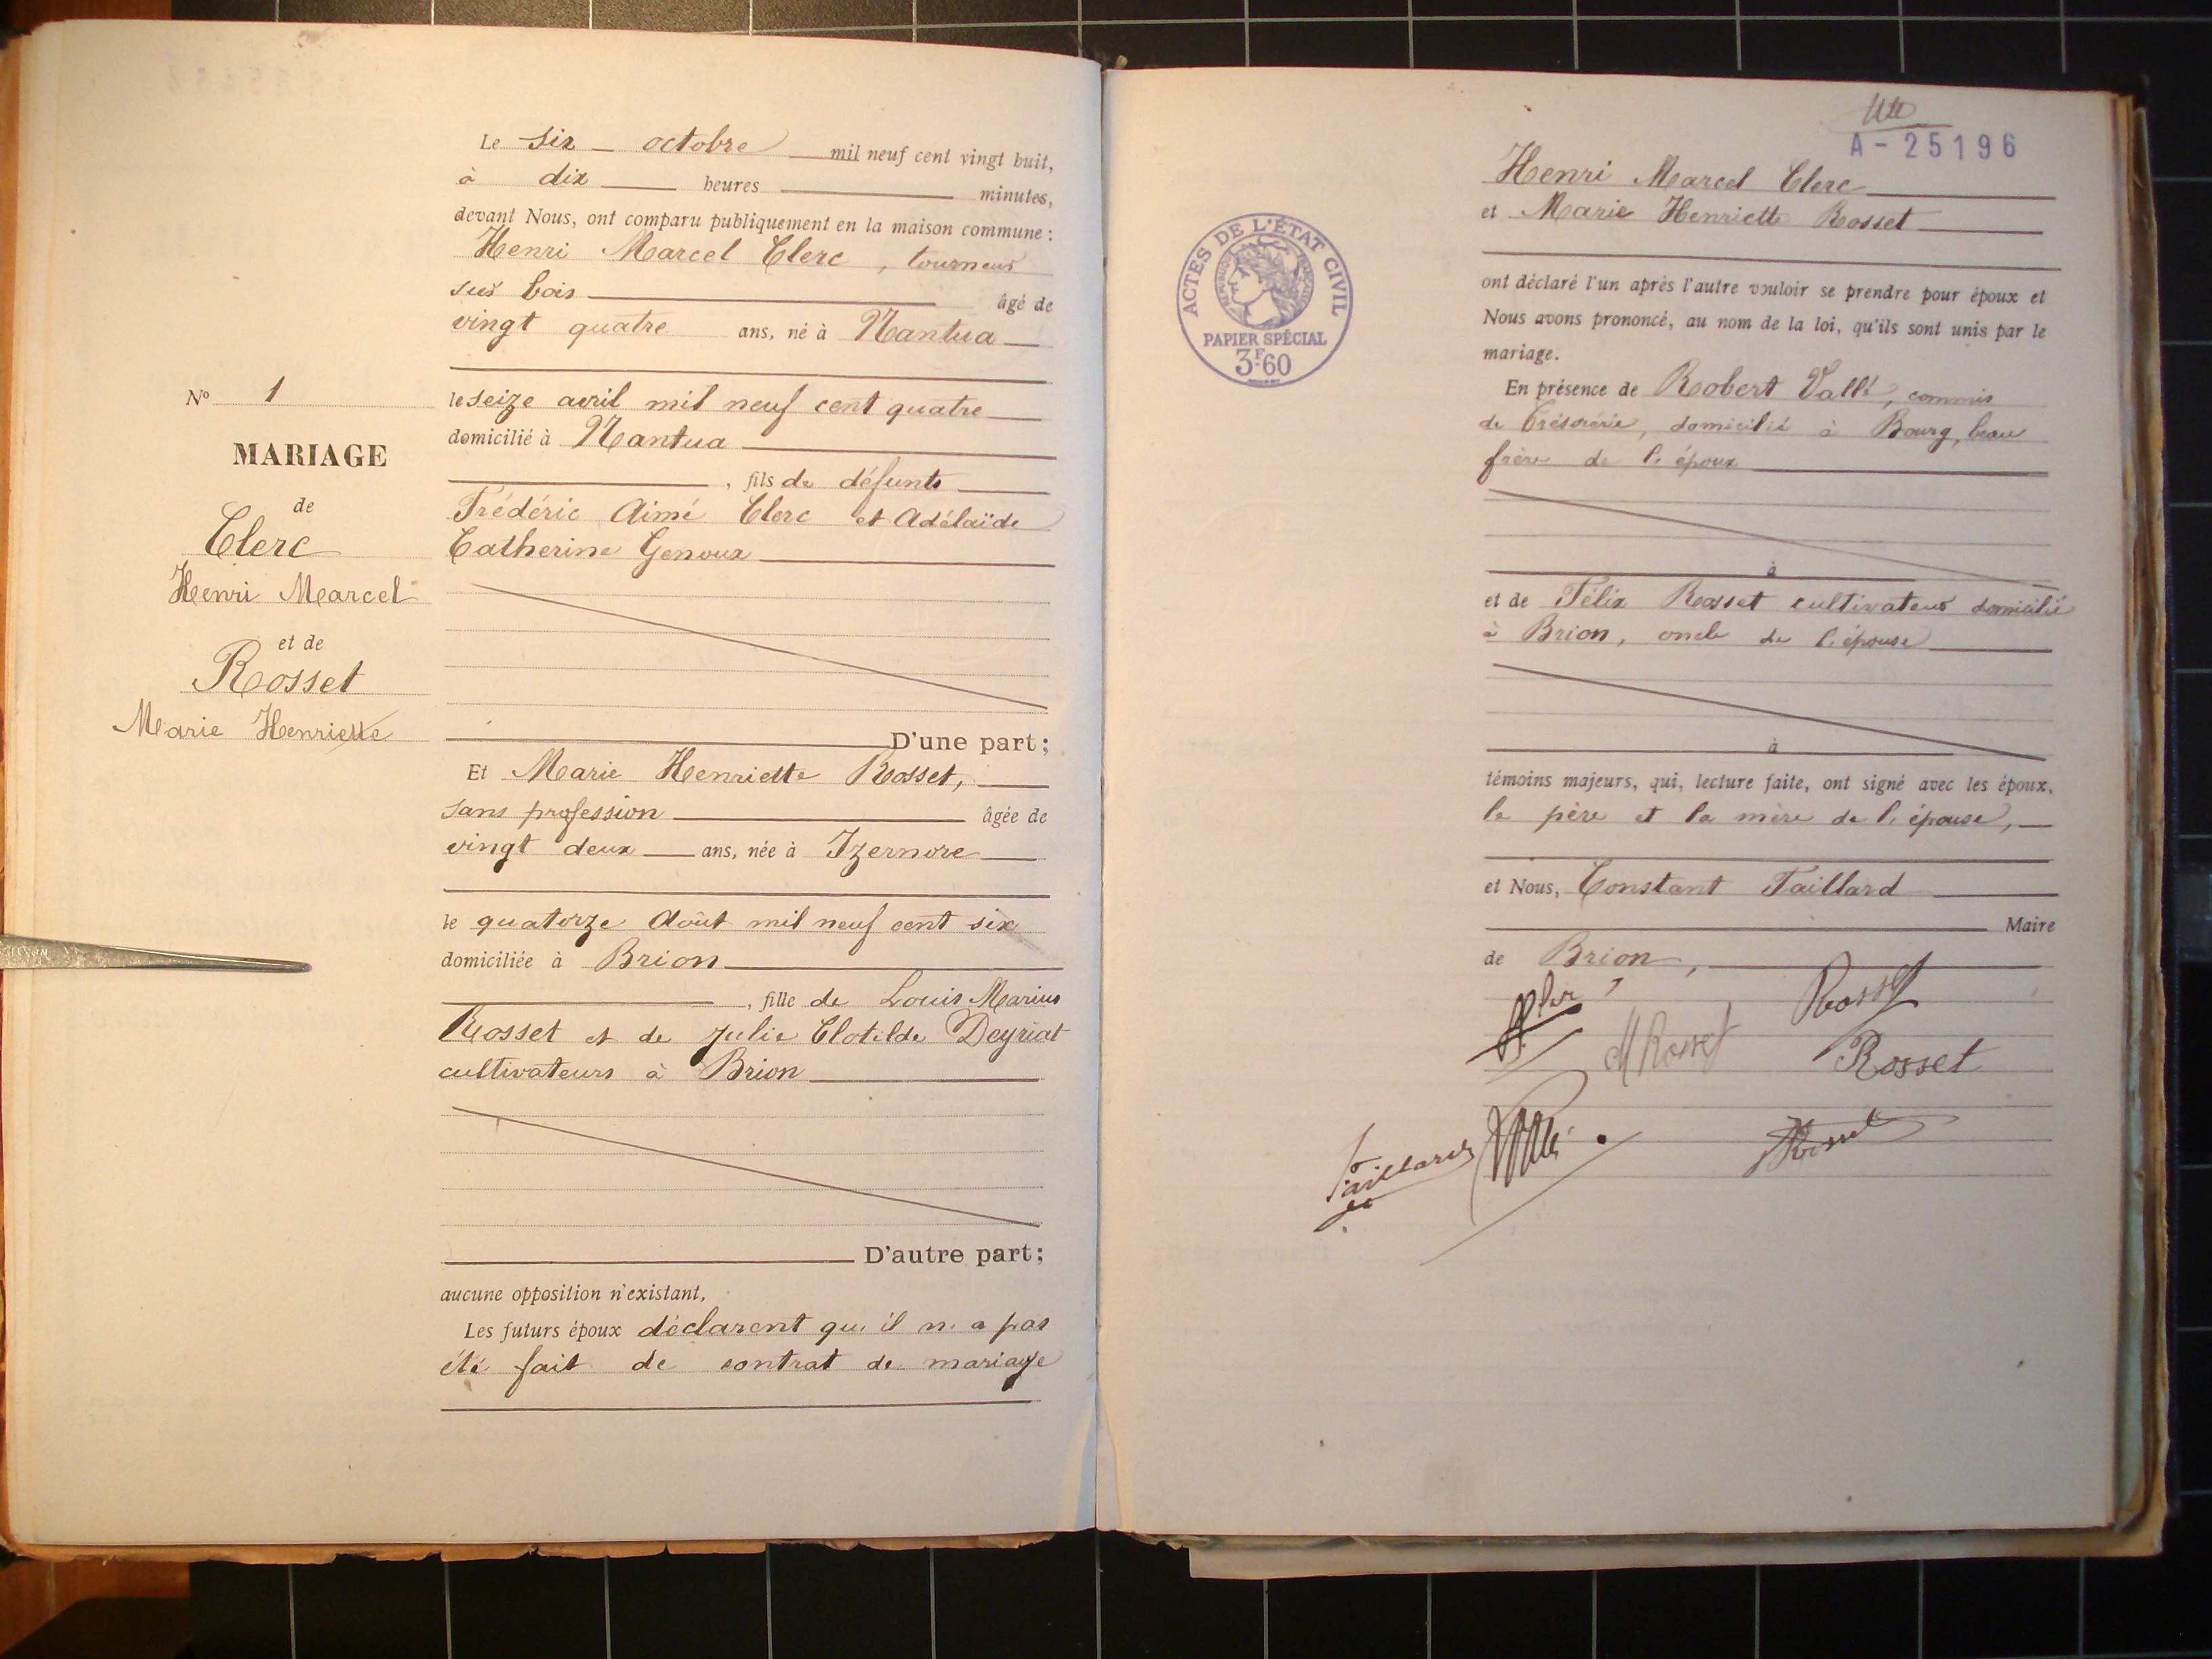 Le six octobre mil neuf cent vingt huit,
à dix heures minutes,
devant Nous, ont comparu publiquement en la maison commune :
Henri Marcel Clerc, tourneur
sur bois âgé de
vingt quatre ans, né à Nantua
le seize avril mil neuf cent quatre
domicilié à Nantua
, fils de défunts
Frédéric Aimé Clerc et Adélaïde
Catherine Genoux
N° 1
MARIAGE
de
Clerc
Henri Marcel
et de
Rosset
Marie Henriette
D'une part ;
Et Marie Henriette Rosset,
sans profession âgée de
vingt deux ans, née à Izernore
le quatorze Août mil neuf cent six
domiciliée à Brion
, fille de Louis Marius
Rosset et de Julie Clotilde Deyriat
cultivateurs à Brion
D'autre part ;
aucune opposition n'existant,
Les futurs époux déclarent qu'il n'a pas
été fait de contrat de mariage
A - 25196
ACTES DE L'ÉTAT CIVIL
PAPIER SPÉCIAL
3F60
Henri Marcel Clerc
et Marie Henriette Rosset
ont déclaré l'un après l'autre vouloir se prendre pour époux et
Nous avons prononcé, au nom de la loi, qu'ils sont unis par le
mariage.
En présence de Robert Vallé, commis
de Trésorerie, domicilié à Bourg, beau
frère de l'époux
à
et de Félix Rosset cultivateur domicilié
à Brion, oncle de l'épouse
à
témoins majeurs, qui, lecture faite, ont signé avec les époux,
le père et la mère de l'épouse,
et Nous, Constant Taillard
Maire
de Brion,
Rosset
M Rosset
Rosset
Taillard